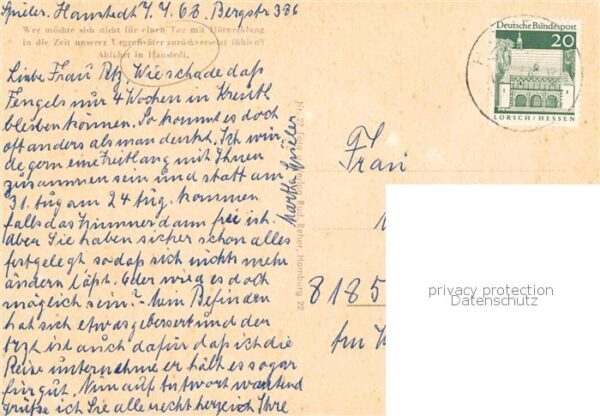 Spieler. Hanstedt 7.7.68. Bergstr 386
Wer möchte sich nicht für einen Tag mit Hörnerklang
in die Zeit unserer Urgroßväter zurückversetzt fühlen?
Abfahrt in Hanstedt.
Liebe Frau Wie schade daß
Fengels nur 4 Wochen in Kreuth
bleiben können. So kommt es doch
oft anders als man denkt. Ich wür-
de gern eine Zeitlang mit Ihnen
zusammen sein und statt am
31. Aug am 24 Aug. kommen
falls das Zimmer dann frei ist.
Aber Sie haben sicher schon alles
festgelegt so daß sich nichts mehr
ändern läßt. Oder wird es doch
möglich sein? Mein Befinden
hat sich etwas gebessert und der
Arzt ist auch dafür daß ich die
Reise unternehme er hält es sogar
für gut. Nun auf Antwort wartend
grüße ich Sie alle recht herzlich Ihre
Martha Spieler
Hamburg 22
Deutsche Bundespost
20
LORSCH/HESSEN
Frau
8185
Am
privacy protection
Datenschutz